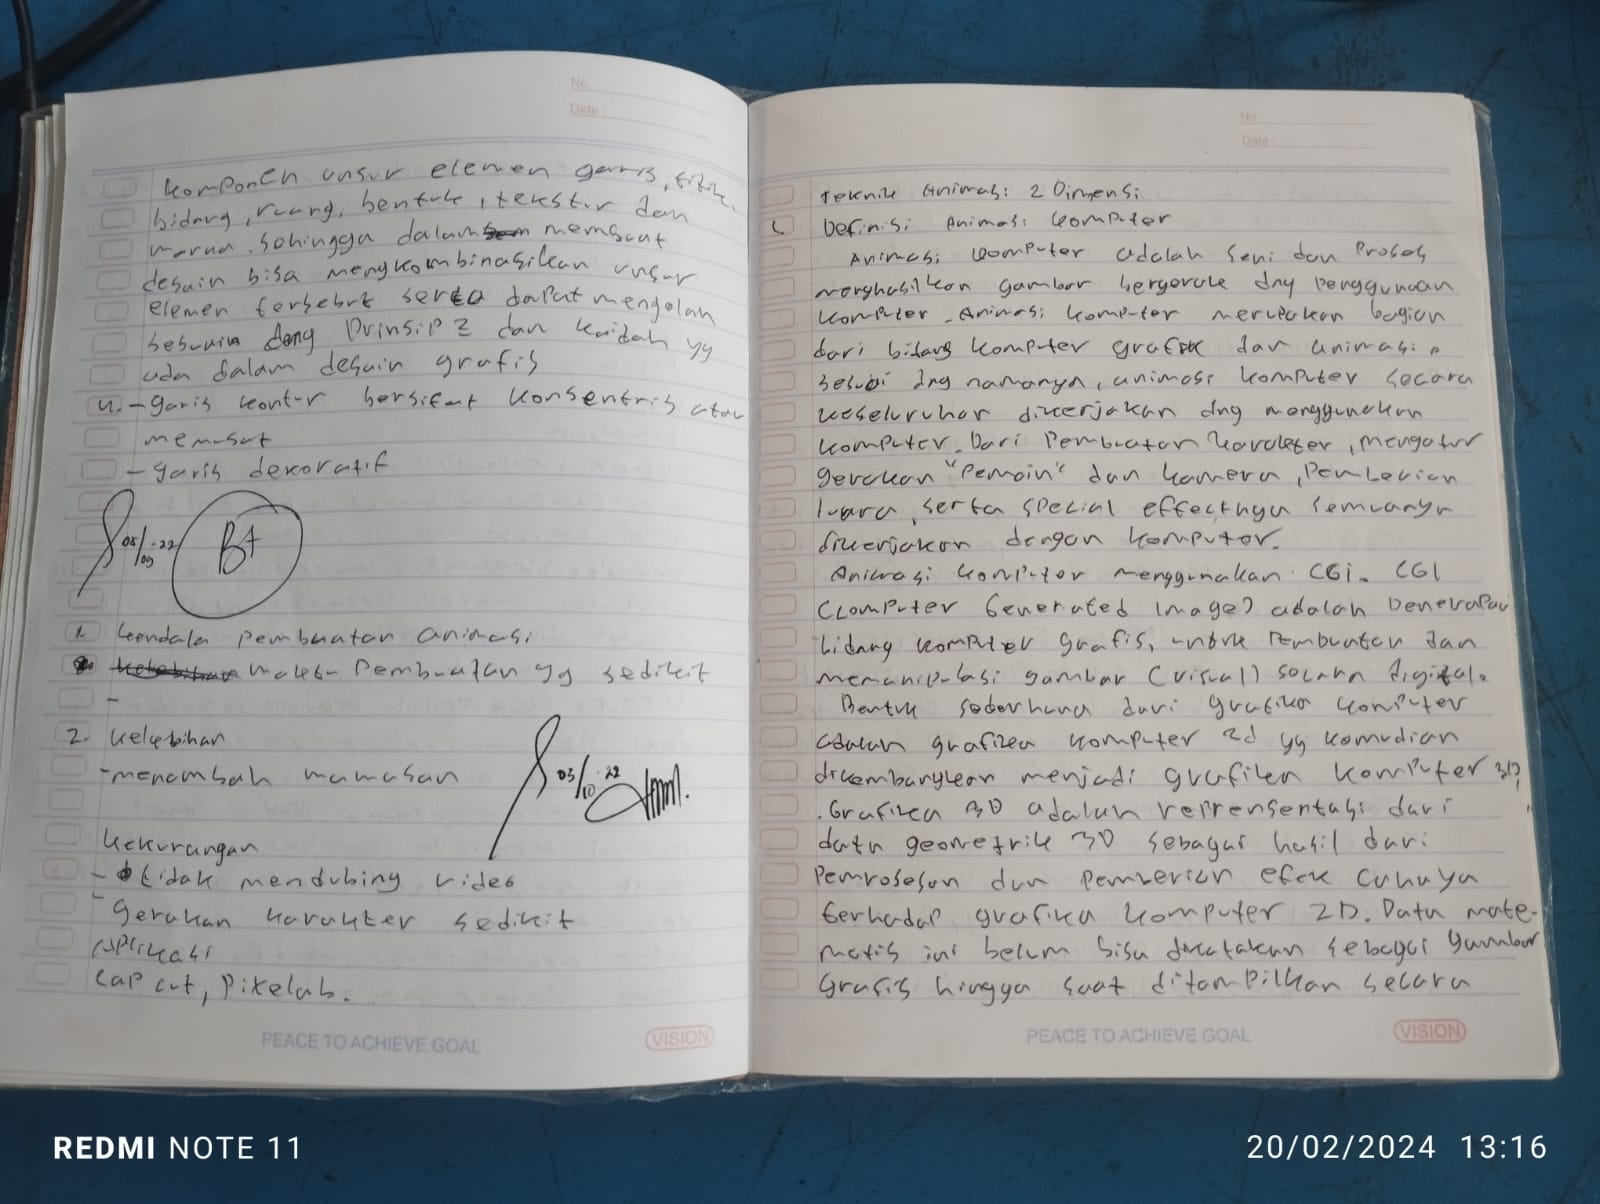 No.
Date :
komponen unsur elemen garis, titik,
bidang, ruang, bentuk, tekstur dan
warna. sehingga dalam membuat
desain bisa mengkombinasikan unsur
elemen tersebut serta dapat mengolah
sesuain deng prinsip 2 dan kaidah yg
ada dalam desain grafis
4. - garis kontur bersifat konsentris atau
memusat
- garis dekoratif
B+
1. kendala pembuatan animasi
pembuatan yg sedikit
-
2. kelebihan
- menambah wawasan
03/10 -22
kekurangan
- tidak mendubing video
- gerakan karakter sedikit
aplikasi
cap cut, pixelab.
PEACE TO ACHIEVE GOAL
VISION
No
Date :
teknik animasi 2 Dimensi
Definisi Animasi komputer
Animasi komputer adalah seni dan proses
menghasilkan gambar bergerak dng penggunaan
komputer. Animasi komputer merupakan bagian
dari bidang komputer grafik dan animasi.
sesuai dng namanya, animasi komputer secara
keseluruhan dikerjakan dng menggunakan
komputer. Dari pembuatan karakter, mengatur
gerakan "Pemain" dan kamera, pemberian
suara, serta special effectnya semuanya
dikerjakan dengan komputer.
Animasi komputer menggunakan CGI. CGI
(Computer Generated Image) adalah penerapan
bidang komputer grafis, untuk pembuatan dan
memanipulasi gambar (visual) secara digital.
Bentuk sederhana dari grafika komputer
adalah grafika komputer 2d yg kemudian
dikembangkan menjadi grafika komputer 3D,
. Grafika 3D adalah reprensentasi dari
data geometrik 3D sebagai hasil dari
pemrosesan dan pemberian efek cahaya
terhadap grafika komputer 2D. Data mate-
matis ini belum bisa dikatakan sebagai gambar
grafis hingga saat ditampilkan secara
PEACE TO ACHIEVE GOAL
VISION
REDMI NOTE 11
20/02/2024 13:16